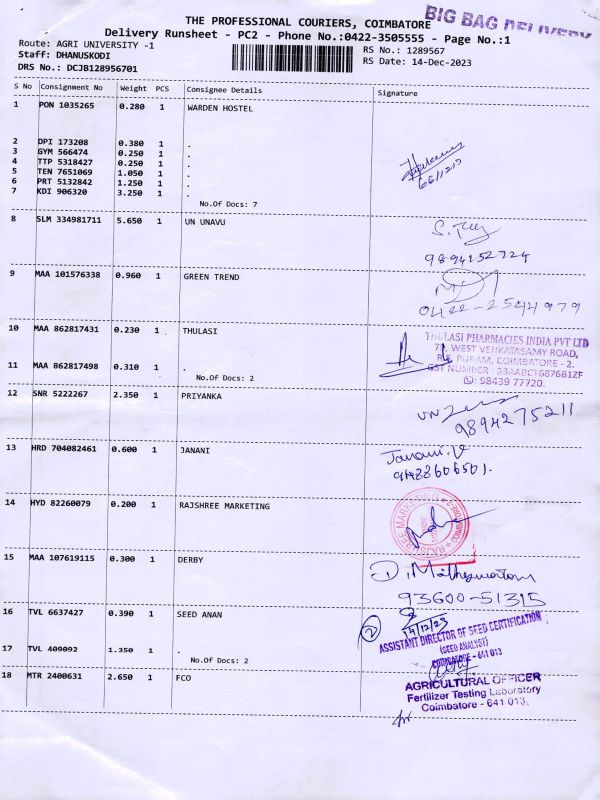 THE PROFESSIONAL COURIERS, COIMBATORE
BIG BAG DELIVERY
Delivery Runsheet - PC2 - Phone No.:0422-3505555 - Page No.:1
Route: AGRI UNIVERSITY -1
RS No.: 1289567
Staff: DHANUSKODI
RS Date: 14-Dec-2023
DRS No.: DCJB128956701
S No Consignment No Weight PCS Consignee Details Signature
1 PON 1035265 0.280 1 WARDEN HOSTEL
2 DPI 173208 0.380 1 .
3 GYM 566474 0.250 1 .
4 TTP 5318427 0.250 1 .
5 TEN 7651069 1.050 1 .
6 PRT 5132842 1.250 1 .
7 KDI 906320 3.250 1 .
No.Of Docs: 7
8 SLM 334981711 5.650 1 UN UNAVU
9894152724
9 MAA 101576338 0.960 1 GREEN TREND
0422-2544979
10 MAA 862817431 0.230 1 THULASI
THULASI PHARMACIES INDIA PVT LTD
WEST VENKATASAMY ROAD,
R.S. PURAM, COIMBATORE - 2.
11 MAA 862817498 0.310 1 .
GST NUMBER - 33AABCT6876B1ZF
No.Of Docs: 2
: 98439 77720.
12 SNR 5222267 2.350 1 PRIYANKA
9894275211
13 HRD 704082461 0.600 1 JANANI
Janani.V
14 HYD 82260079 0.200 1 RAJSHREE MARKETING
RAJSHREE MARKETING COIMBATORE
15 MAA 107619115 0.300 1 DERBY
93600-51315
16 TVL 6637427 0.390 1 SEED ANAN
2
14/12/23
ASSISTANT DIRECTOR OF SEED CERTIFICATION
(SEED ANALYST)
17 TVL 409092 1.350 1 .
COIMBATORE - 641 013
No.Of Docs: 2
18 MTR 2400631 2.650 1 FCO
AGRICULTURAL OFFICER
Fertilizer Testing Laboratory
Coimbatore - 641 013.